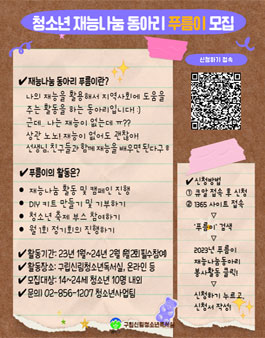 청소년 재능나눔 동아리 푸름이 모집
신청하기 접속
✔재능나눔 동아리 푸름이란?
나의 재능을 활용해서 지역사회에 도움을
주는 활동을 하는 동아리입니다 :)
근데.. 나는 재능이 없는데 ㅠ??
상관 노노! 재능이 없어도 괜찮아!
선생님, 친구들과 함께 재능을 배우면 된다구!!
✔푸름이의 활동은?
• 재능나눔 활동 및 캠페인 진행
• DIY 키트 만들기 및 기부하기
• 청소년 축제 부스 참여하기
• 월 1회 정기회의 진행하기
✔활동기간: 23년 1월~24년 2월 월2회 필수참여
✔활동장소: 구립신림청소년독서실, 온라인 등
✔모집대상: 14~24세 청소년 10명 내외
✔문의: 02-856-1207 청소년사업팀
✔신청방법
① 큐알 접속 후 신청
② 1365 사이트 접속
▽
'푸름이' 검색
▽
2023년 푸름이
재능나눔동아리
봉사활동 클릭!
▽
신청하기 누르고
신청서 작성!
구립신림청소년독서실